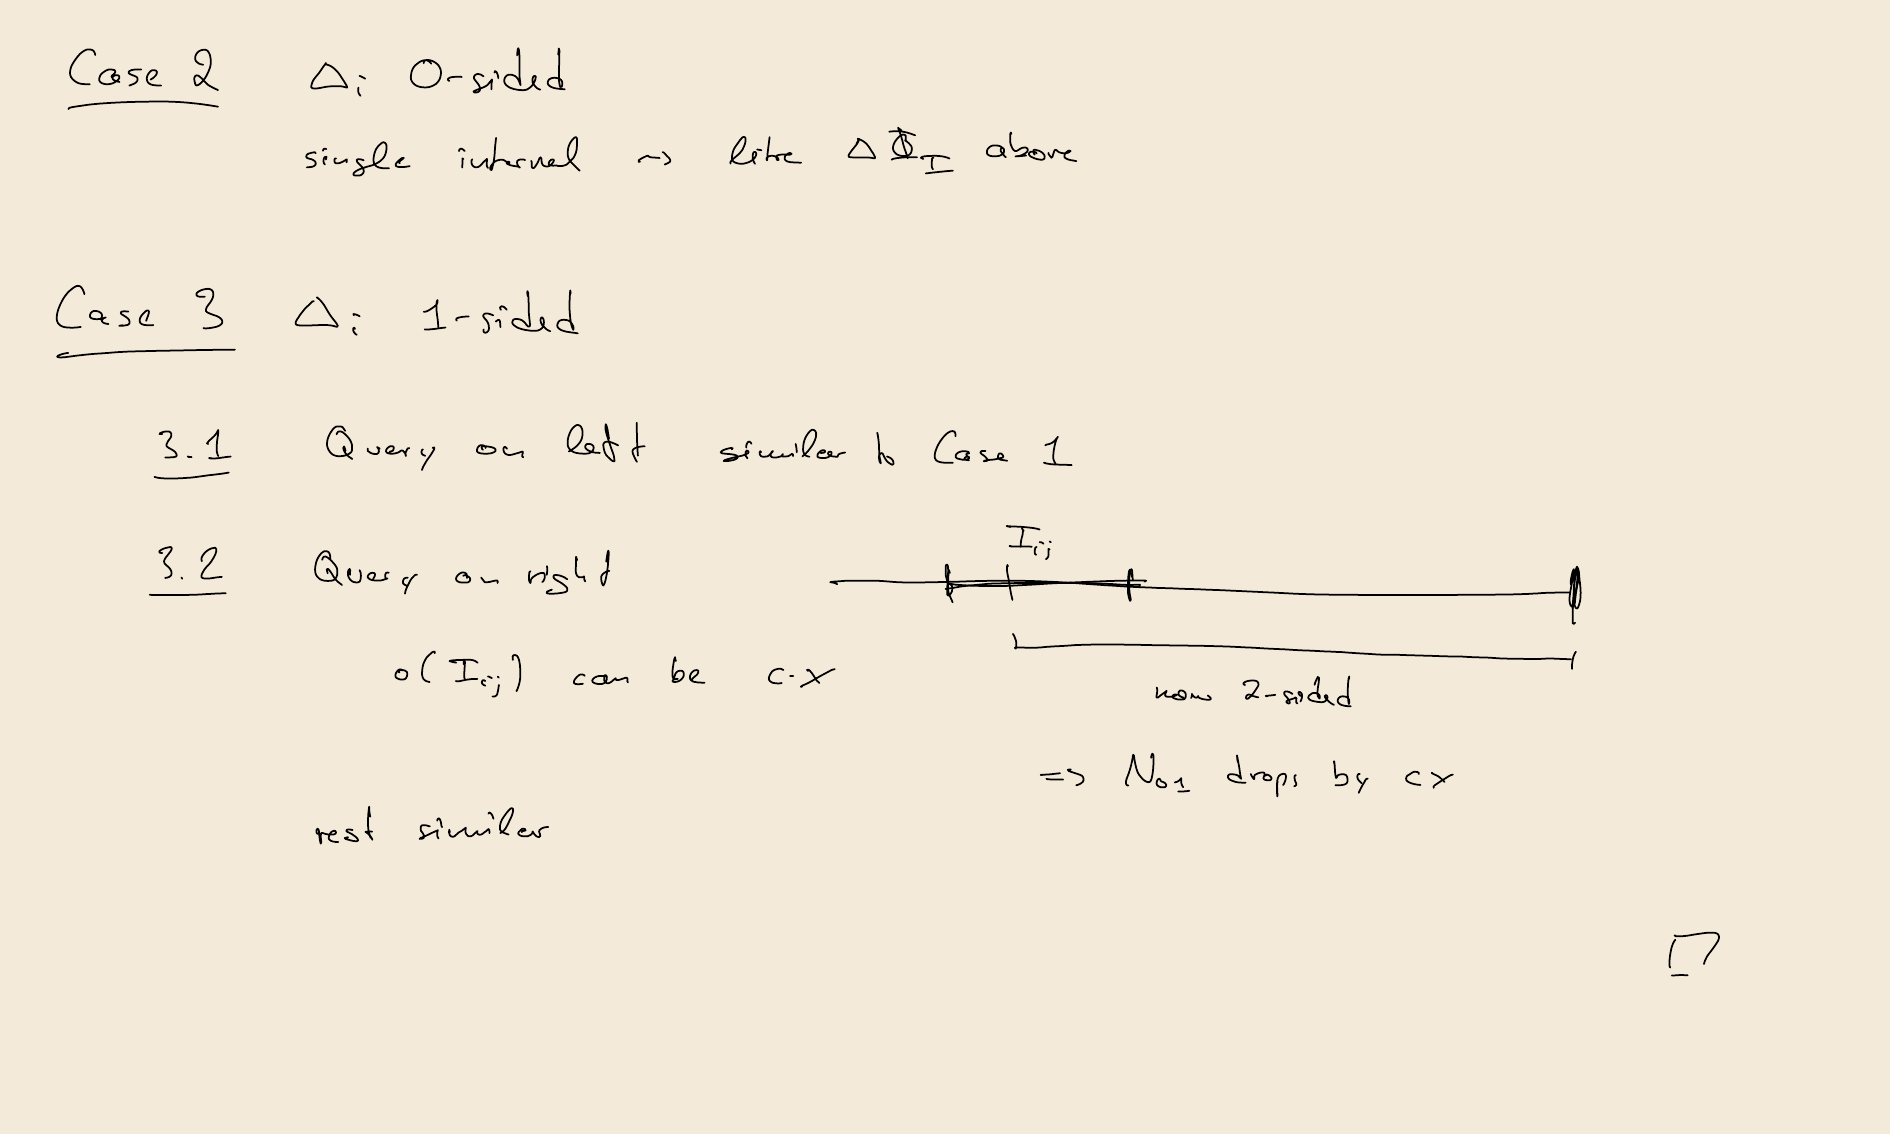 Case 2 Δi 0-sided
single interval ⇝ like ΔΦ_I above
Case 3 Δi 1-sided
3.1 Query on left similar to Case 1
I_ij
3.2 Query on right
o(I_ij) can be c·x
now 2-sided
=> N_01 drops by cx
rest similar